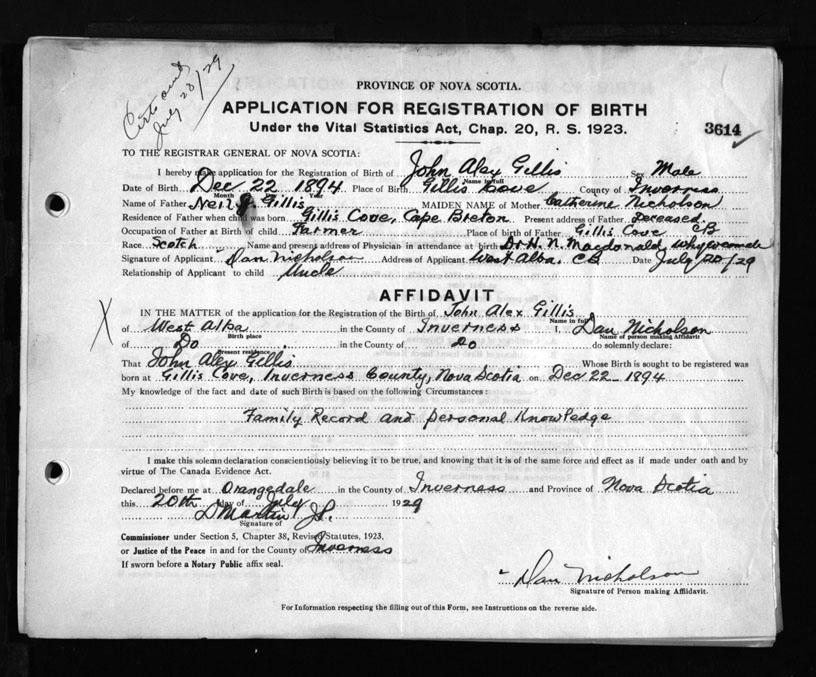 Certs and
July 20/29
PROVINCE OF NOVA SCOTIA.
APPLICATION FOR REGISTRATION OF BIRTH
Under the Vital Statistics Act, Chap. 20, R. S. 1923.
3614 ✓
TO THE REGISTRAR GENERAL OF NOVA SCOTIA:
I hereby make application for the Registration of Birth of John Alex Gillis Sex Male
Name in full
Date of Birth Dec 22 1894 Place of Birth Gillis Cove County of Inverness
Month Day Year
Name of Father Neil J. Gillis MAIDEN NAME of Mother Catherine Nicholson
Residence of Father when child was born Gillis Cove, Cape Breton Present address of Father Deceased.
Occupation of Father at Birth of child Farmer Place of birth of Father Gillis Cove CB
Race Scotch Name and present address of Physician in attendance at birth Dr H. N. Macdonald, Whycocomah
Signature of Applicant "Dan Nicholson Address of Applicant West Alba. CB Date July 20/29
Relationship of Applicant to child Uncle
AFFIDAVIT
X
IN THE MATTER of the application for the Registration of the Birth of John Alex Gillis
Name in full
of West Alba in the County of Inverness I, Dan Nicholson
Birth place Name of person making Affidavit
of Do in the County of Do do solemnly declare:
Present residence
That John Alex Gillis Whose Birth is sought to be registered was
born at Gillis Cove, Inverness County, Nova Scotia on Dec 22 1894
My knowledge of the fact and date of such Birth is based on the following Circumstances:
Family Record and personal Knowledge
I make this solemn declaration conscientiously believing it to be true, and knowing that it is of the same force and effect as if made under oath and by
virtue of The Canada Evidence Act.
Declared before me at Orangedale in the County of Inverness and Province of Nova Scotia
this 20th day of July 1929
D Martin J.P.
Signature of
Commissioner under Section 5, Chapter 38, Revised Statutes, 1923,
or Justice of the Peace in and for the County of Inverness
If sworn before a Notary Public affix seal.
"Dan Nicholson
Signature of Person making Affidavit.
For Information respecting the filling out of this Form, see Instructions on the reverse side.